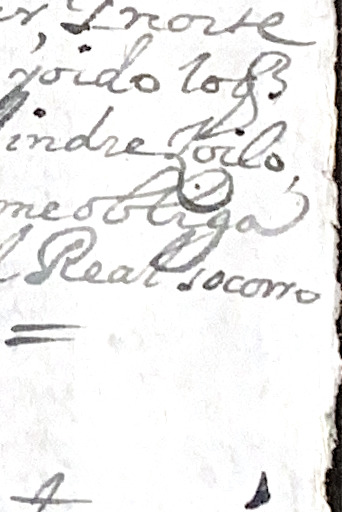 Norte
oido los
indre Zoilo,
me obliga
l Real socorro
=